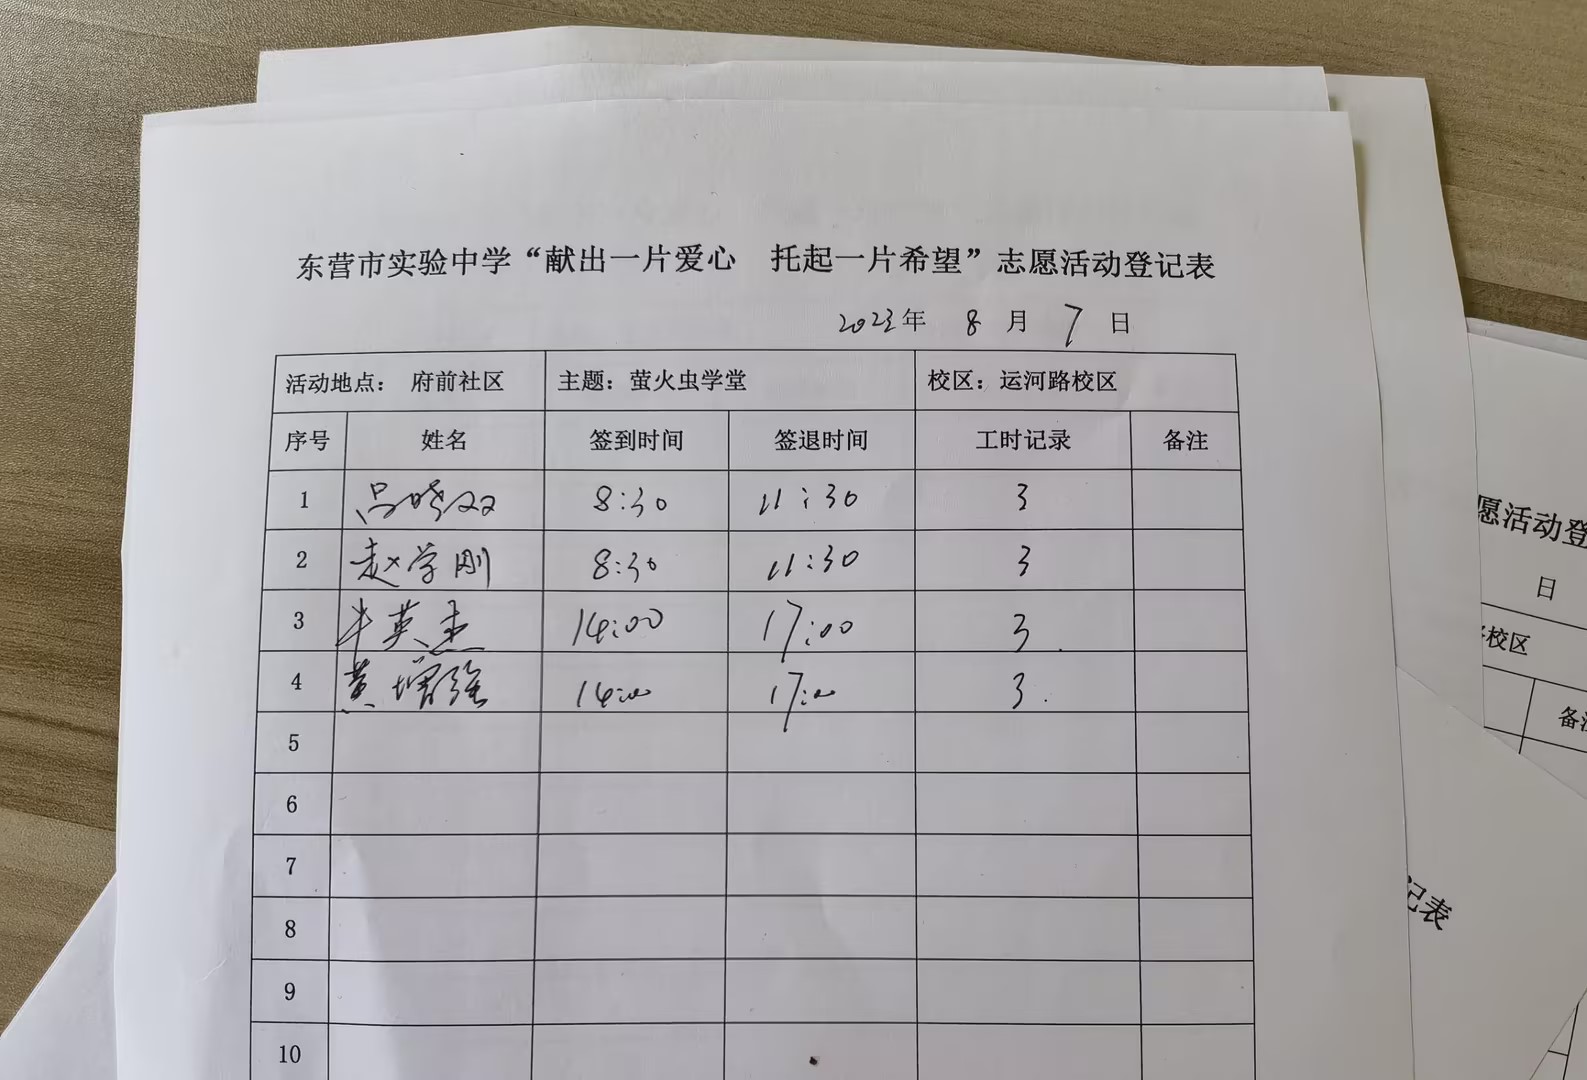 东营市实验中学“献出一片爱心　托起一片希望”志愿活动登记表
2023年 8 月 7 日
活动地点： 府前社区 主题：萤火虫学堂 校区：运河路校区
序号 姓名 签到时间 签退时间 工时记录 备注
1 吕晓双 8:30 11:30 3
2 赵学刚 8:30 11:30 3
3 牛英杰 14:00 17:00 3
4 黄增强 14:00 17:00 3
5
6
7
8
9
10
愿活动登
日
校区
备
记表